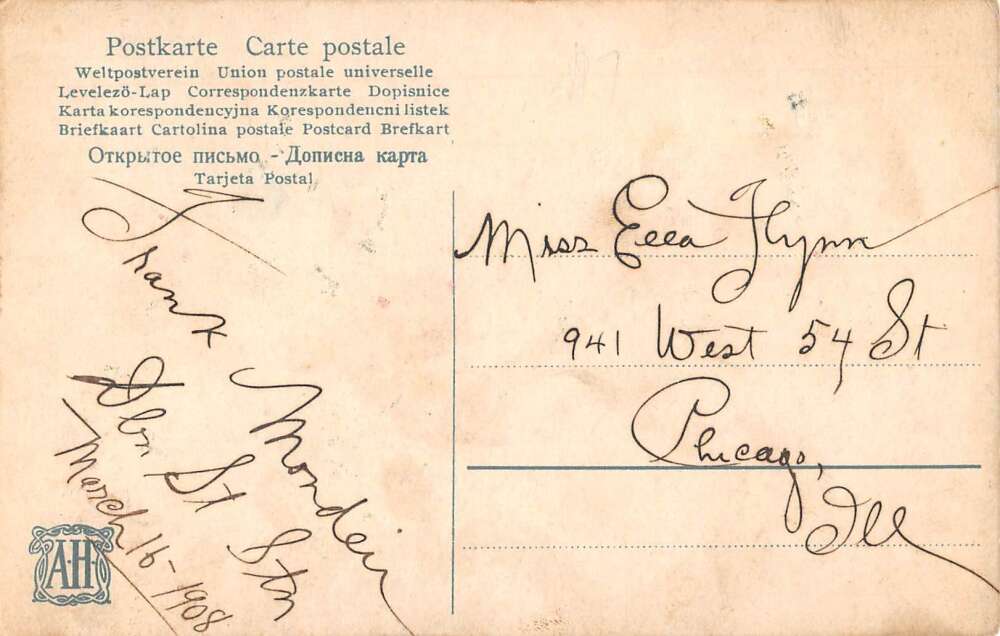 Postkarte Carte postale
Weltpostverein Union postale universelle
Levelező-Lap Correspondenzkarte Dopisnice
Karta korespondencyjna Korespondencni listek
Briefkaart Cartolina postale Postcard Brefkart
Открытое письмо - Дописна карта
Tarjeta Postal
Frank Mondein
Dbn St Stn
March 16-1908
A.H.
Miss Ella Flynn
941 West 54 St
Chicago,
Ill